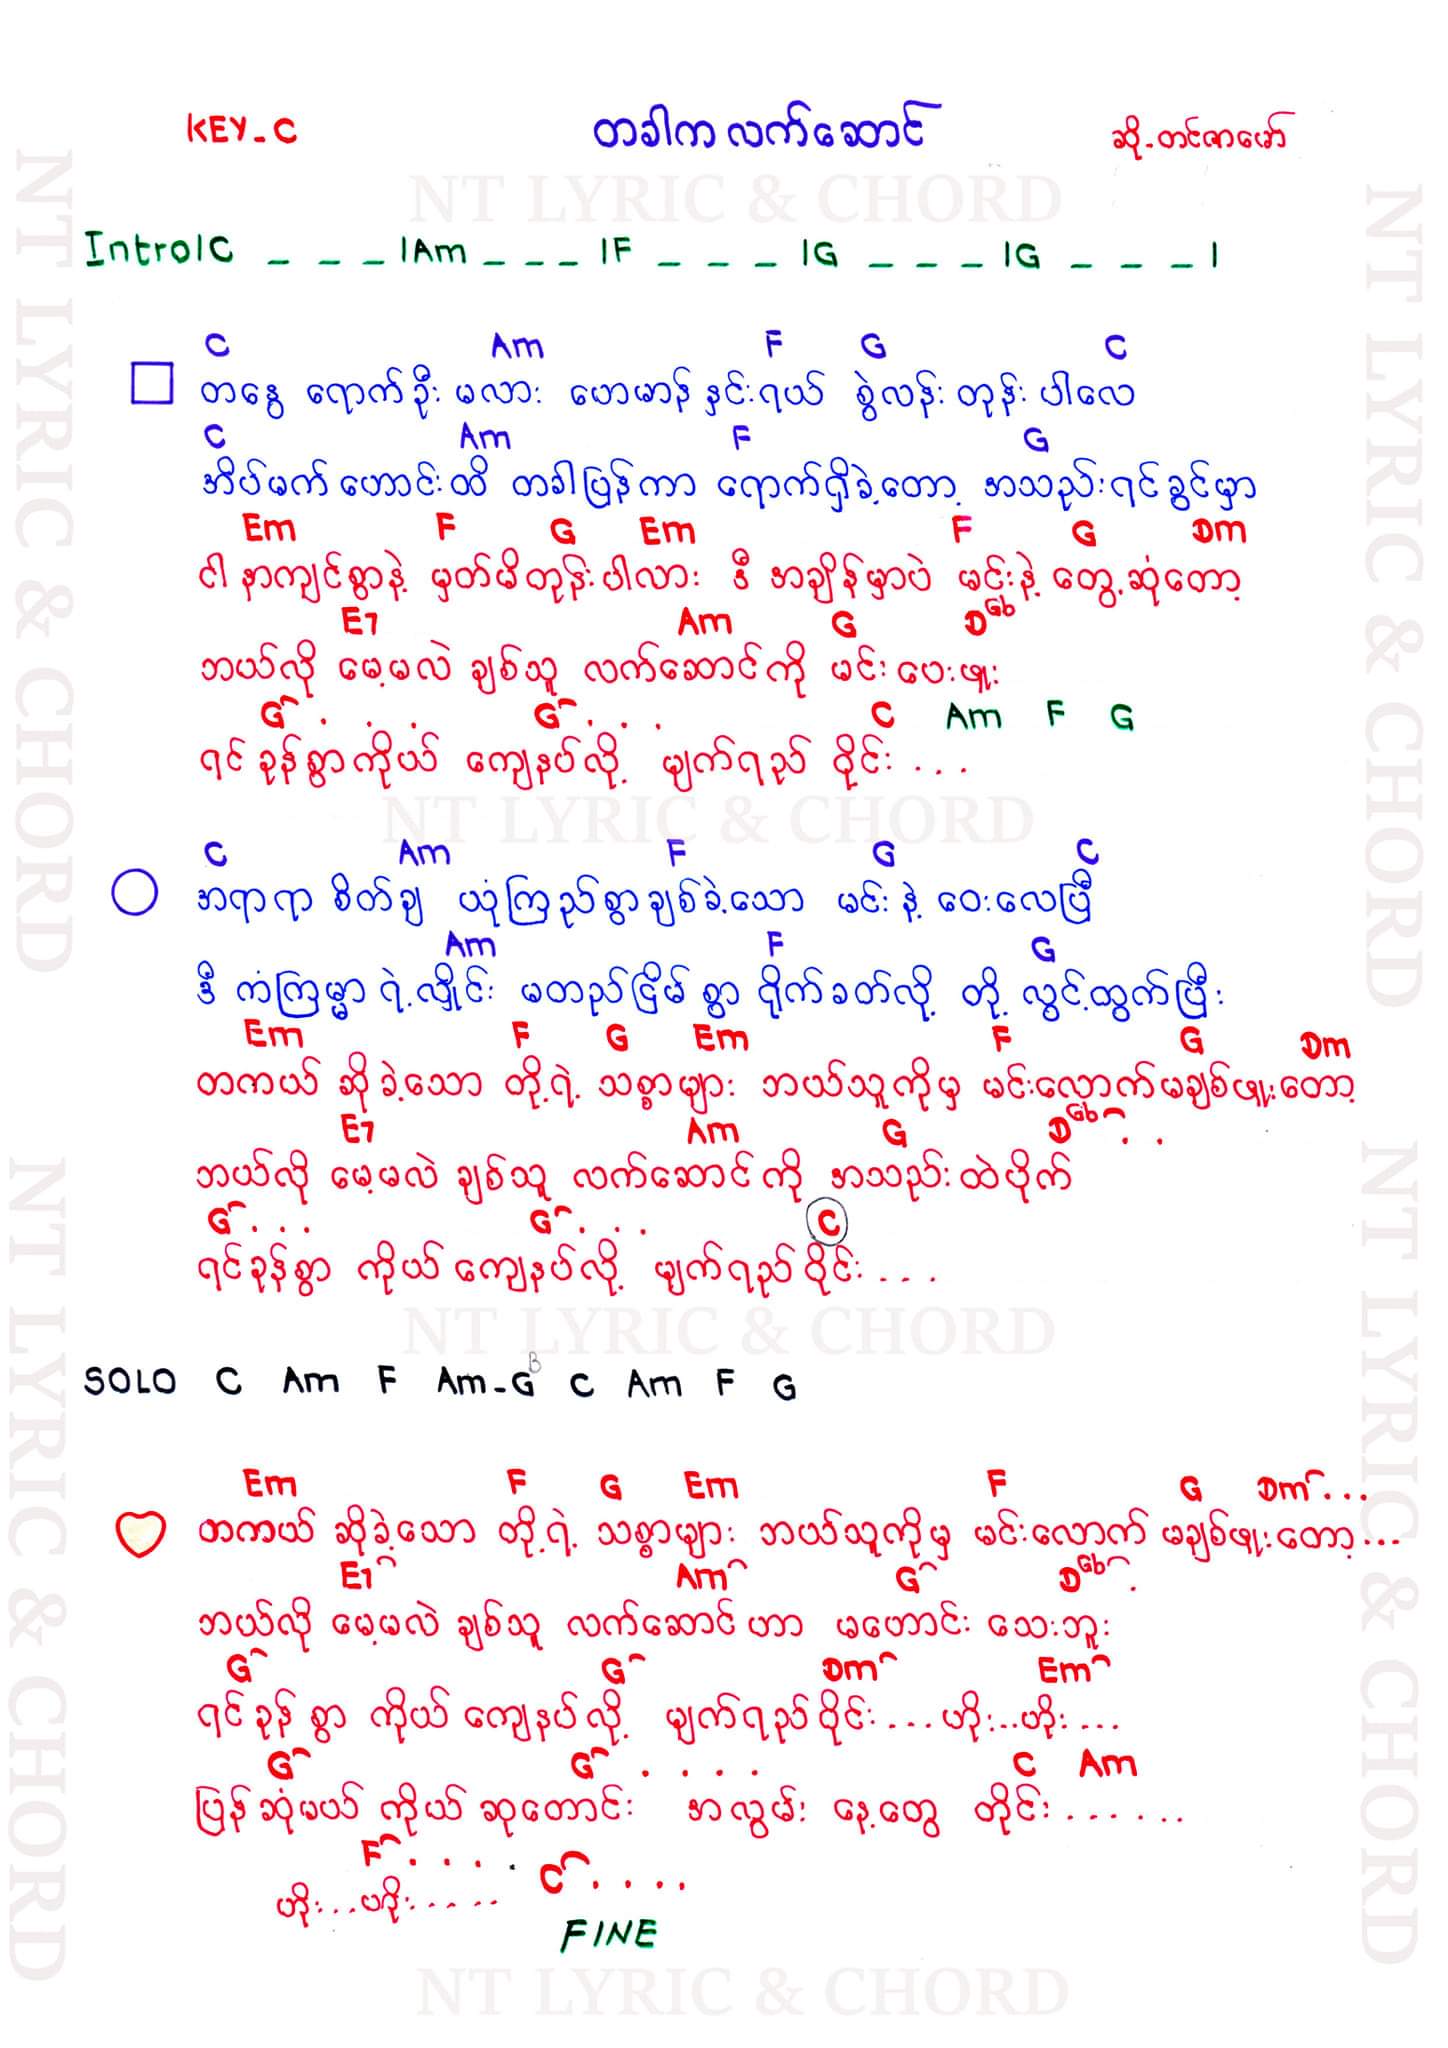 KEY - C တခါက လက်ဆောင် ဆို - တင်ဇာမော်
NT LYRIC & CHORD
Intro|C _ _ _ |Am _ _ _ |F _ _ _ |G _ _ _ |G _ _ _ |
C Am F G C
တနွေ ရောက်ဦး မလား ဟေမာန် နှင်းရယ် စွဲလန်း တုန်း ပါလေ
C Am F G
အိပ်မက် ဟောင်းထိ တခါပြန်ကာ ရောက်ရှိခဲ့တော့ အသည်းရင်ခွင်မှာ
Em F G Em F G Dm
ငါ နာကျင်စွာနဲ့ မှတ်မိတုန်းပါလား ဒီ အချိန်မှာပဲ မင်းနဲ့ တွေ့ဆုံတော့
E7 Am G D Gb
ဘယ်လို မေ့မလဲ ချစ်သူ လက်ဆောင်ကို မင်း ပေးဖူး
G . . . G . . . C Am F G
ရင်ခုန်စွာကိုယ် ကျေနပ်လို့ မျက်ရည် ဝိုင်း . . .
NT LYRIC & CHORD
C Am F G C
အရာရာ စိတ်ချ ယုံကြည်စွာချစ်ခဲ့သော မင်း နဲ့ ဝေးလေပြီ
Am F G
ဒီ ကံကြမ္မာ ရဲ့လှိုင်း မတည်ငြိမ် စွာ ရိုက်ခတ်လို့ တို့ လွင့်ထွက်ပြီး
Em F G Em F G Dm
တကယ် ဆိုခဲ့သော တို့ရဲ့ သစ္စာများ ဘယ်သူကိုမှ မင်းလောက်မချစ်ဖူးတော့
E7 Am G D Gb . .
ဘယ်လို မေ့မလဲ ချစ်သူ လက်ဆောင်ကို အသည်းထဲပိုက်
G . . . G . . . C
ရင်ခုန်စွာ ကိုယ် ကျေနပ်လို့ မျက်ရည်ဝိုင်း . . .
NT LYRIC & CHORD
SOLO C Am F Am - G B C Am F G
Em F G Em F G Dm . . .
တကယ် ဆိုခဲ့သော တို့ရဲ့ သစ္စာများ ဘယ်သူကိုမှ မင်းလောက် မချစ်ဖူးတော့ . . .
E7 Am G D Gb .
ဘယ်လို မေ့မလဲ ချစ်သူ လက်ဆောင် ဟာ မဟောင်း သေးဘူး
G G Dm Em
ရင်ခုန် စွာ ကိုယ် ကျေနပ်လို့ မျက်ရည်ဝိုင်း . . . ဟိုး . . ဟိုး . . .
G G . . . . C Am
ပြန်ဆုံမယ် ကိုယ် ဆုတောင်း အလွမ်း နေ့တွေ တိုင်း . . . . . .
F . . . . C . . . .
ဟိုး . . . . . . . .
FINE
NT LYRIC & CHORD
NT LYRIC & CHORD
NT LYRIC & CHORD
NT LYRIC & CHORD
NT LYRIC & CHORD